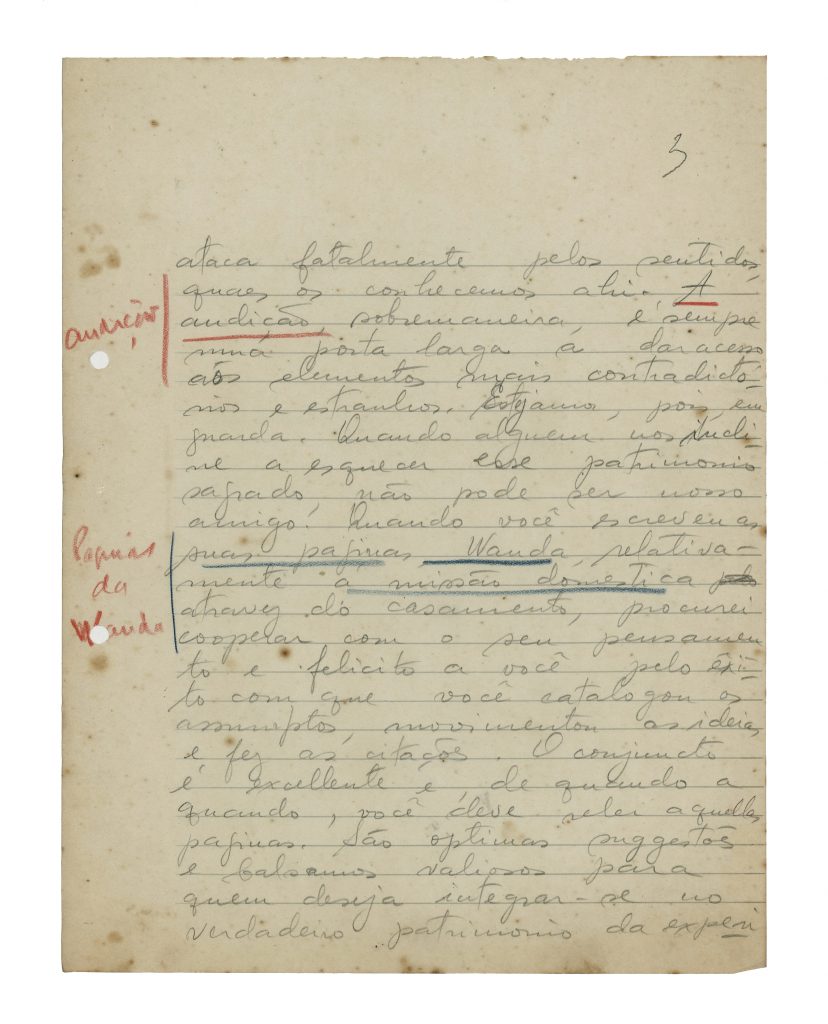 3
ataca fatalmente pelos sentidos,
quaes os conhecemos ahi. A
audição, sobremaneira, é sempre
uma porta larga a dar accesso
aos elementos mais contradictó-
rios e estranhos. Estejamos, pois, em
guarda. Quando alguem nos incli-
ne a esquecer esse patrimonio
sagrado, não pode ser nosso
amigo. Quando você escreveu as
suas paginas Wanda, relativa-
mente á missão domestica
atravez do casamento, procurei
cooperar com o seu pensamen
to e felicito a você pelo êxi-
to com que você catalogou os
assumptos, movimentou as ideias
e fez as citações. O conjuncto
é excellente e, de quando a
quando, você deve reler aquellas
paginas. São optimas suggestões
e balsamos valiosos para
quem deseja integrar-se no
verdadeiro patrimonio da experi
audição
Paginas
da
Wanda